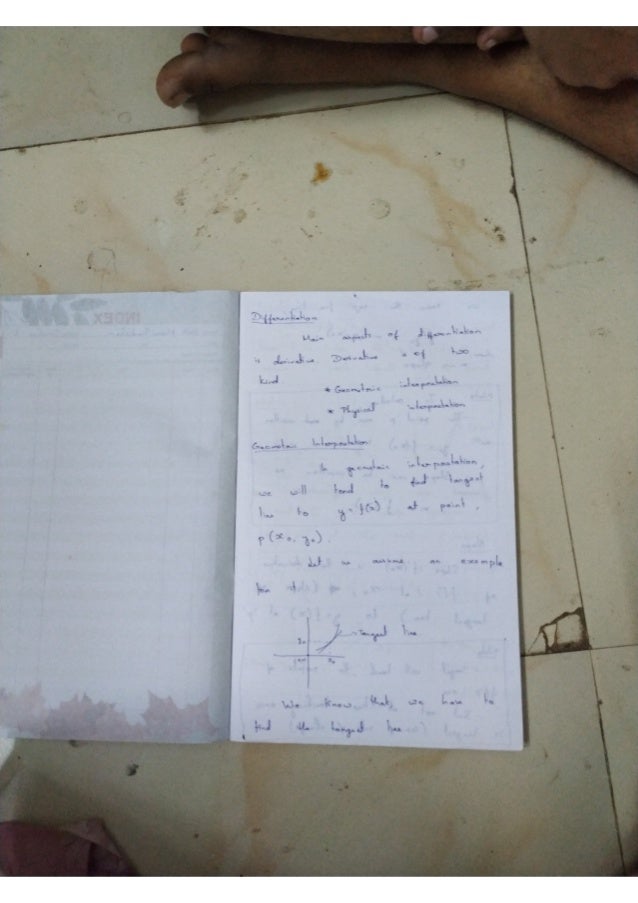 INDEX
Differentiation
Main aspects of differentiation
is derivative. Derivative is of two
kind
* Geometric interpretation
* Physical interpretation
Geometric Interpretation:
In geometric interpretation,
we will tend to find tangent
line to y=f(x) at point,
p(x₀, y₀).
Let us assume an example
Tangent line
y₀
x₀
We know that, we have to
find the tangent line